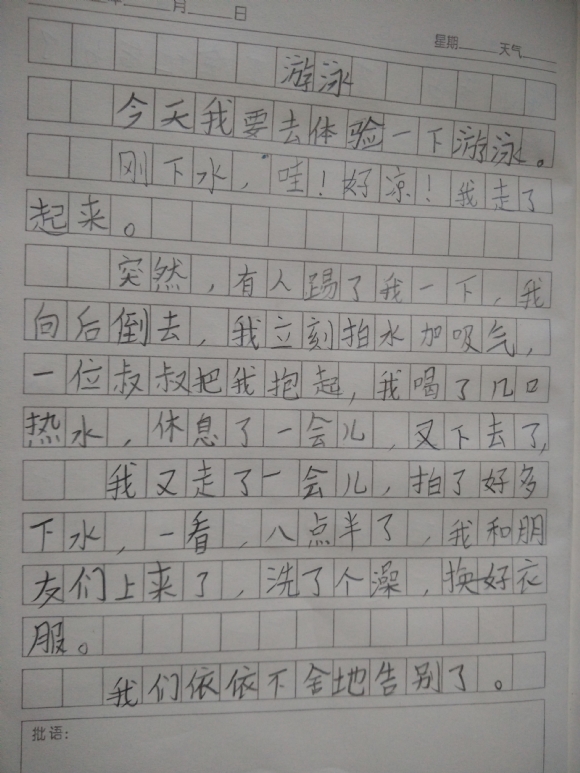 月 日
星期 天气
游泳
今天我要去体验一下游泳。
刚下水，哇！好凉！我走了
起来。
突然，有人踢了我一下，我
向后倒去，我立刻拍水加吸气，
一位叔叔把我抱起，我喝了几口
热水，休息了一会儿，又下去了，
我又走了一会儿，拍了好多
下水，一看，八点半了，我和朋
友们上来了，洗了个澡，换好衣
服。
我们依依不舍地告别了。
批语：